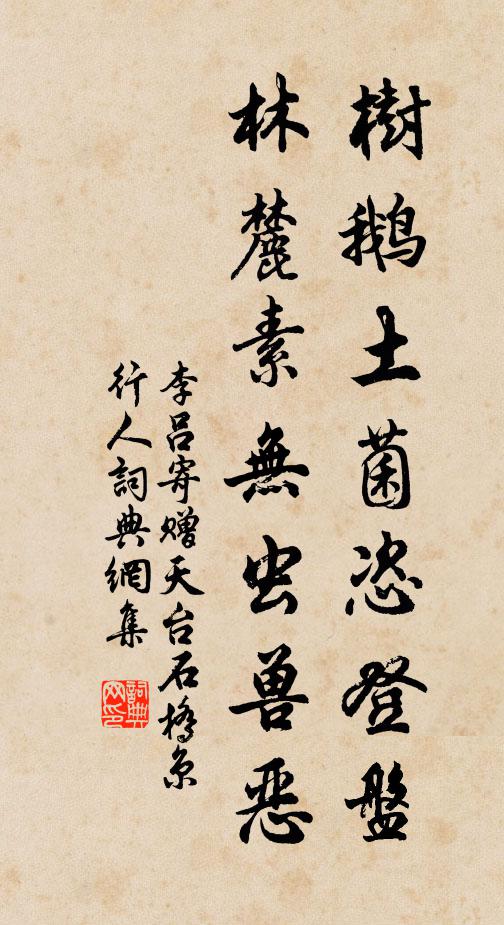 樹鵝土菌恣登盤
林麓素無虫兽惡
李吕寄赠天台石橋京
行人詞典網集
詞典网印